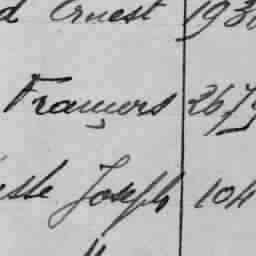 d Ernest 193
François 267
Joseph 104